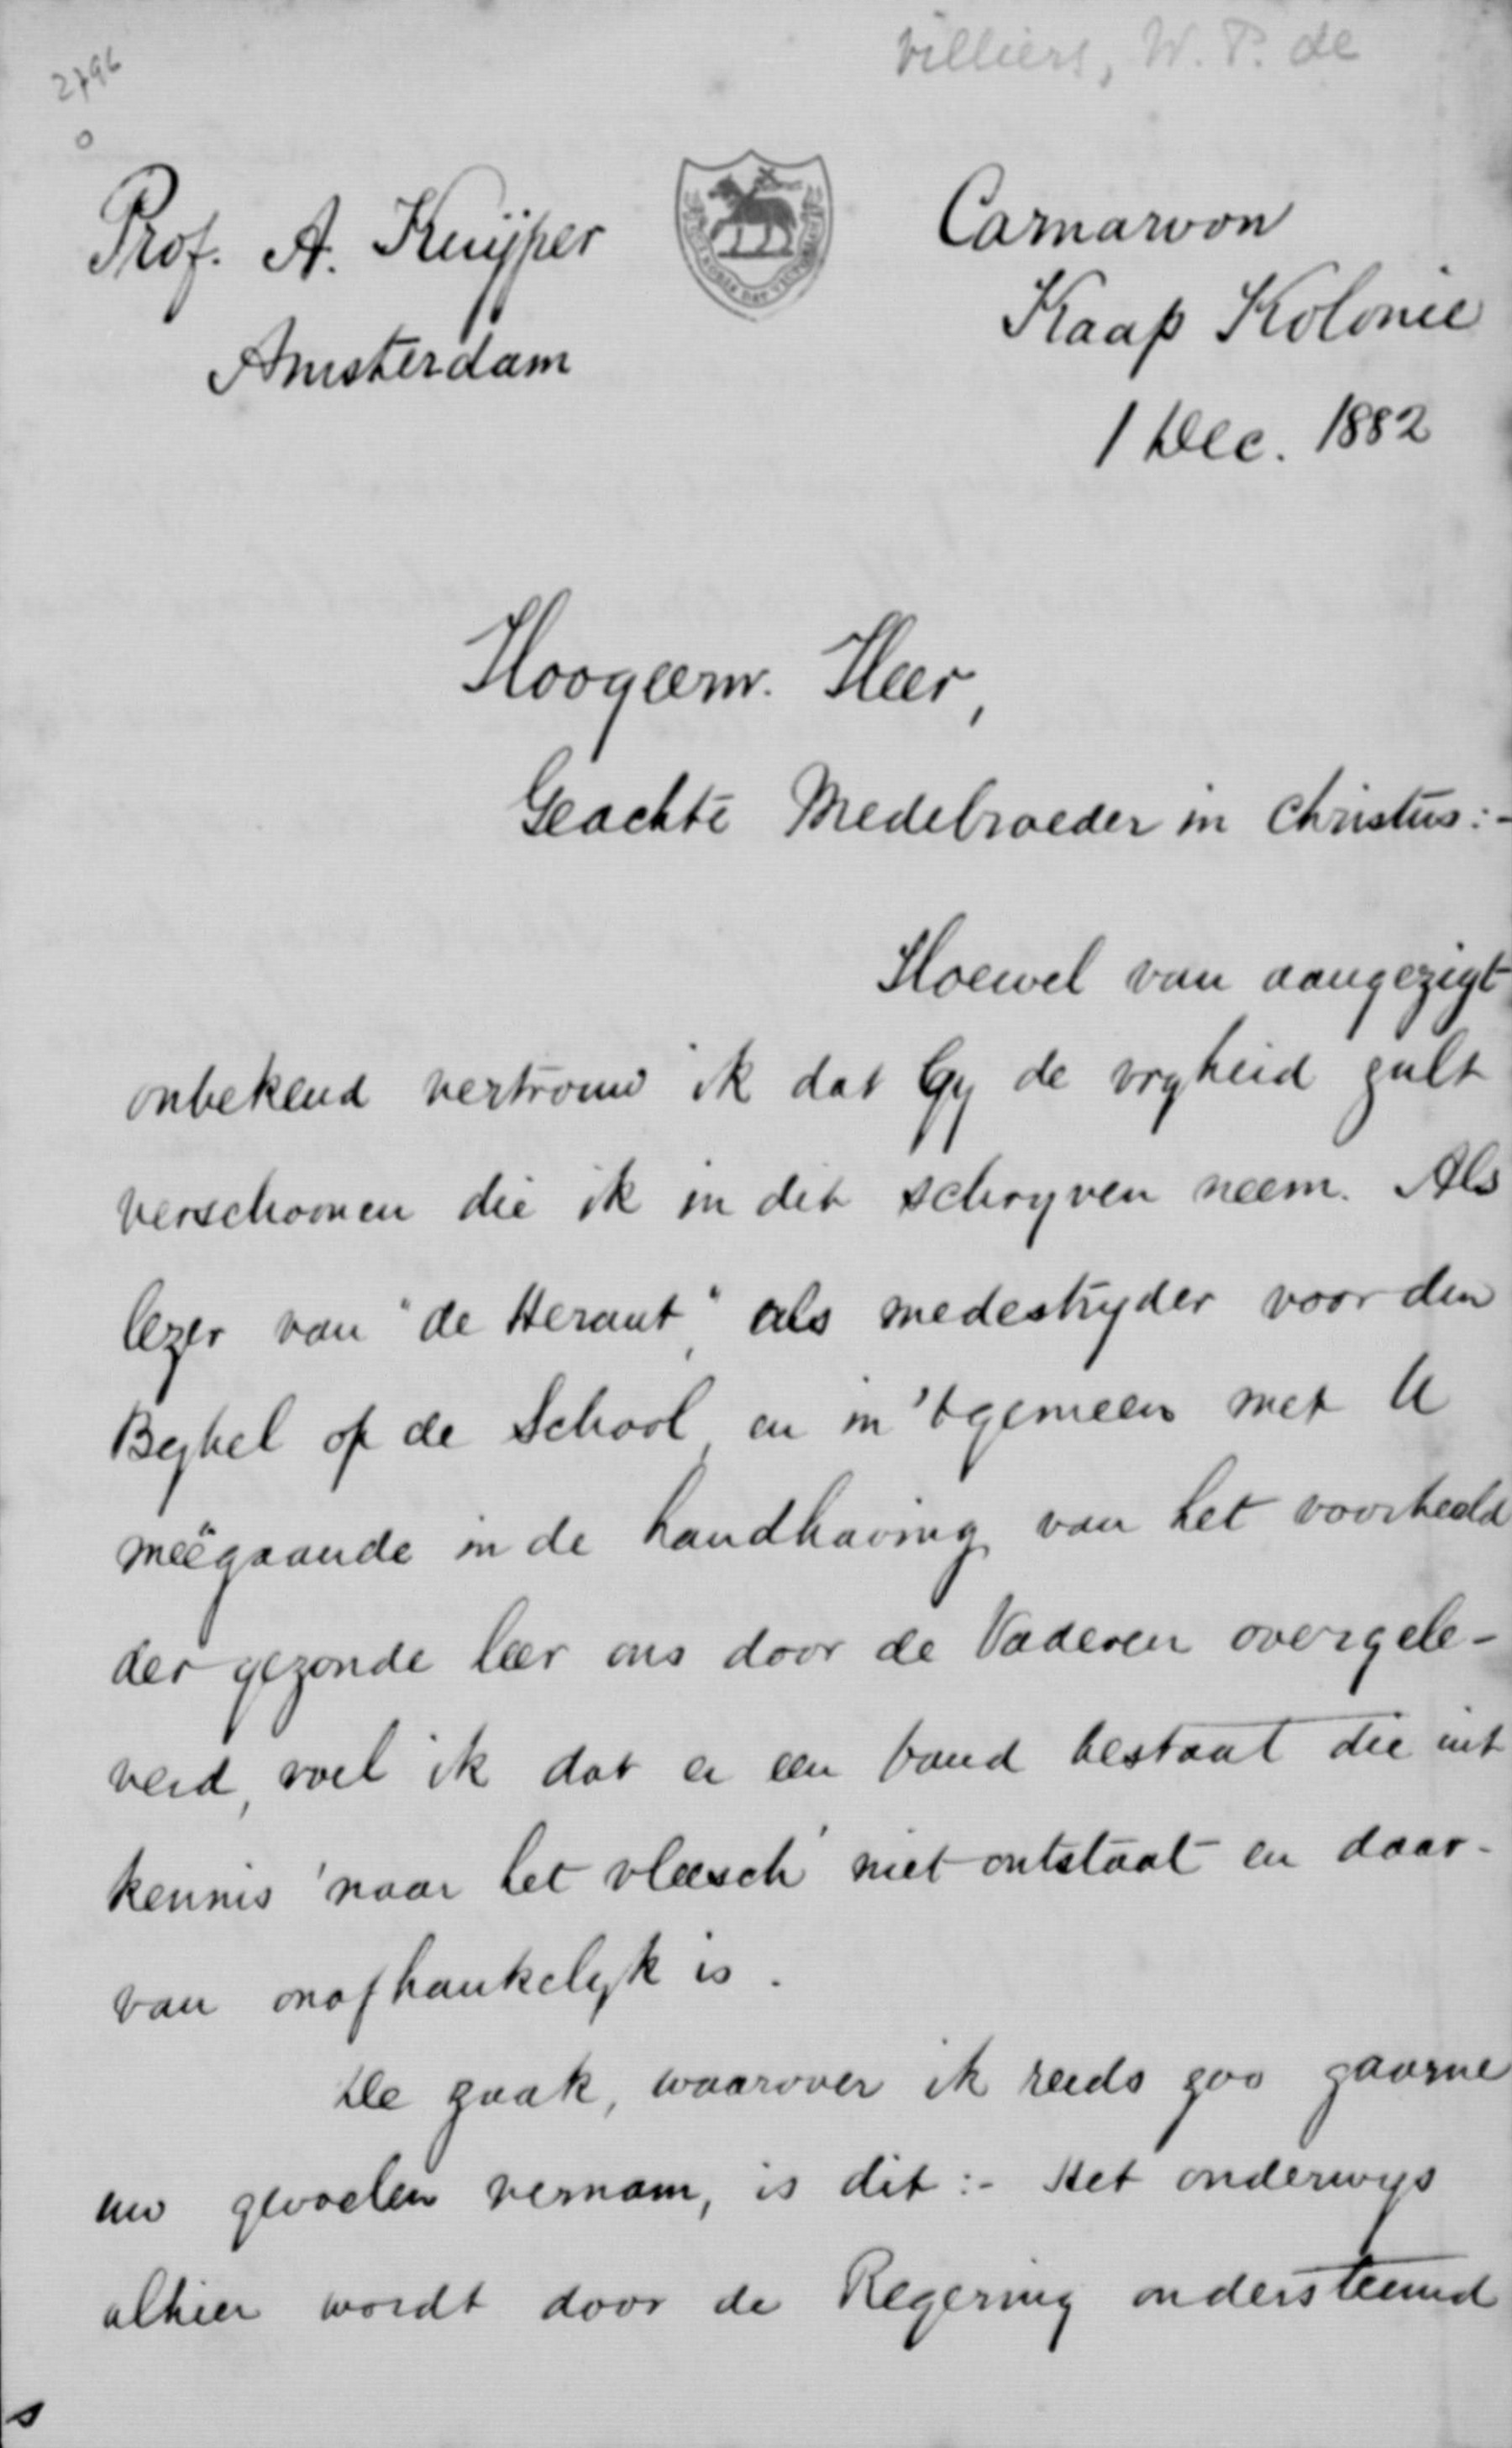 Villiers, W. P. de
2796
0
Prof. A. Kuÿper
Amsterdam
Carnarvon
Kaap Kolonie
1 Dec. 1882
Hoogeerw. Heer,
Geachte Medebroeder in Christus:-
Hoewel van aangezigt
onbekend vertrouw ik dat Gy de vryheid zult
verschoonen die ik in dit schryven neem. Als
lezer van "de Heraut", als medestryder voor den
Bybel op de School, en in 't gemeen met U
meëgaande in de handhaving van het voorbeeld
der gezonde leer ons door de Vaderen overgele-
verd, voel ik dat er een band bestaat die uit
kennis 'naar het vleesch' niet ontstaat en daar-
van onafhankelyk is.
De zaak, waarover ik reeds zoo gaarne
uw gevoelen vernam, is dit:- Het onderwys
alhier wordt door de Regering ondersteund
s